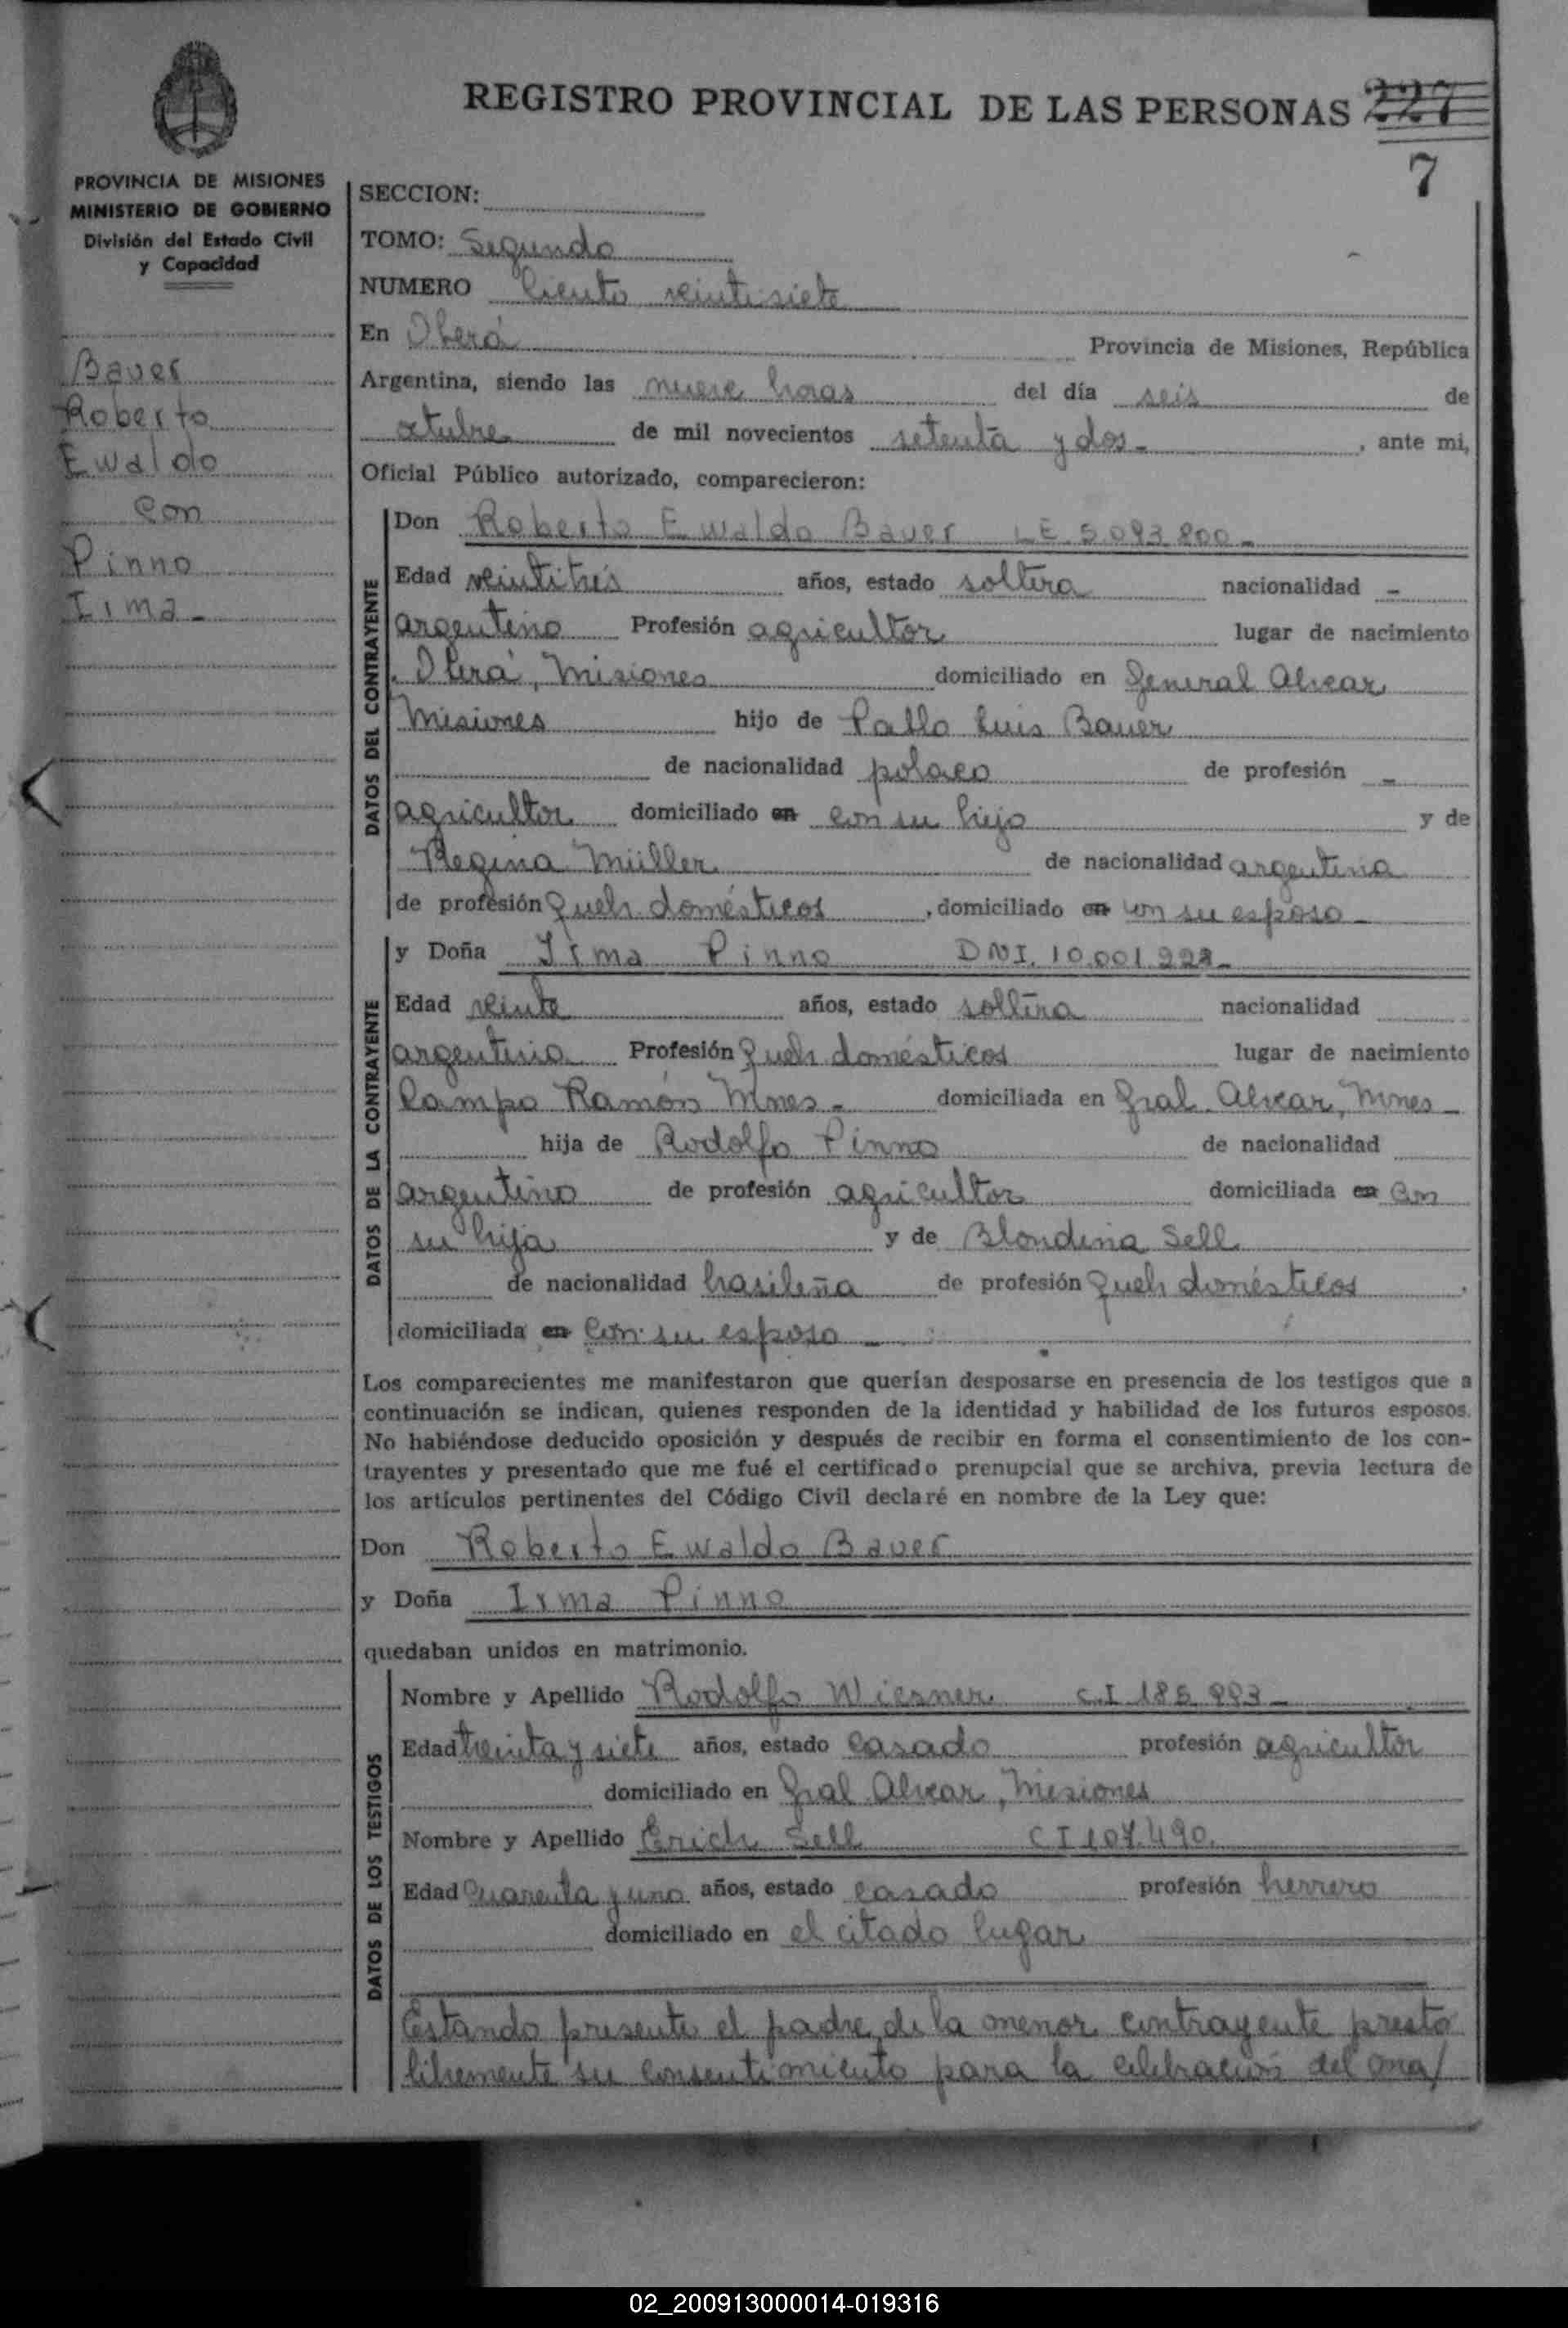 REGISTRO PROVINCIAL DE LAS PERSONAS 227
7
PROVINCIA DE MISIONES
MINISTERIO DE GOBIERNO
División del Estado Civil
y Capacidad
Bauer
Roberto
Ewaldo
con
Pinno
Irma -
SECCION:
TOMO: Segundo
NUMERO Ciento veintisiete
En Oberá Provincia de Misiones, República
Argentina, siendo las nueve horas del día seis de
octubre de mil novecientos setenta y dos - , ante mi,
Oficial Público autorizado, comparecieron:
DATOS DEL CONTRAYENTE
Don Roberto Ewaldo Bauer LE 5.093.800 -
Edad veintitrés años, estado soltero nacionalidad -
argentino Profesión agricultor lugar de nacimiento
Oberá, Misiones domiciliado en General Alvear
Misiones hijo de Pablo Luis Bauer
de nacionalidad polaco de profesión -
agricultor domiciliado en con su hijo y de
Regina Müller de nacionalidad argentina
de profesión Queh. domésticos , domiciliado en con su esposo -
DATOS DE LA CONTRAYENTE
y Doña Irma Pinno DNI.
Edad veinte años, estado soltera nacionalidad
argentina Profesión Queh domésticos lugar de nacimiento
Campo Ramón Mnes - domiciliada en Gral. Alvear, Mnes -
hija de Rodolfo Pinno de nacionalidad
argentino de profesión agricultor domiciliada en con
su hija y de Blondina Sell
de nacionalidad brasileña de profesión Queh domésticos .
domiciliada en con su esposo -
Los comparecientes me manifestaron que querían desposarse en presencia de los testigos que a
continuación se indican, quienes responden de la identidad y habilidad de los futuros esposos.
No habiéndose deducido oposición y después de recibir en forma el consentimiento de los con-
trayentes y presentado que me fué el certificado prenupcial que se archiva, previa lectura de
los artículos pertinentes del Código Civil declaré en nombre de la Ley que:
Don Roberto Ewaldo Bauer
y Doña Irma Pinno
quedaban unidos en matrimonio.
DATOS DE LOS TESTIGOS
Nombre y Apellido Rodolfo Wiesner C.I
Edad treinta y siete años, estado casado profesión agricultor
domiciliado en Gral Alvear, Misiones
Nombre y Apellido Erich Sell C I 107.490.
Edad Cuarenta y uno años, estado casado profesión herrero
domiciliado en el citado lugar
Estando presente el padre de la menor contrayente prestó
libremente su consentimiento para la celebración del ma/
02_200913000014-019316